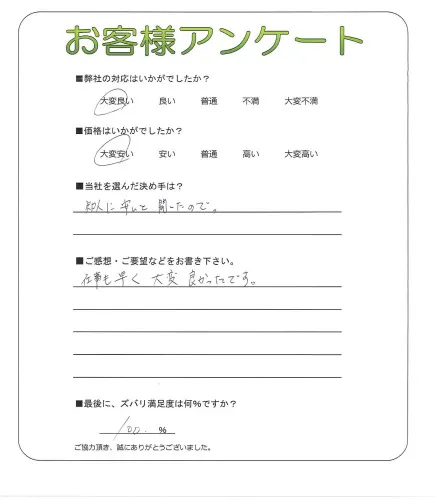 お客様アンケート
■弊社の対応はいかがでしたか？
大変良い 良い 普通 不満 大変不満
■価格はいかがでしたか？
大変安い 安い 普通 高い 大変高い
■当社を選んだ決め手は？
知人に安いと聞いたので。
■ご感想・ご要望などをお書き下さい。
仕事も早く 大変 良かったです。
■最後に、ズバリ満足度は何％ですか？
100. ％
ご協力頂き、誠にありがとうございました。